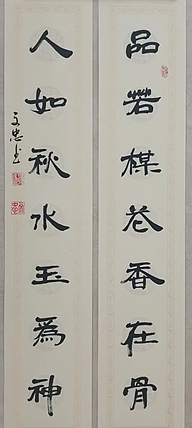 品若梅花香在骨
人如秋水玉為神
文忠書